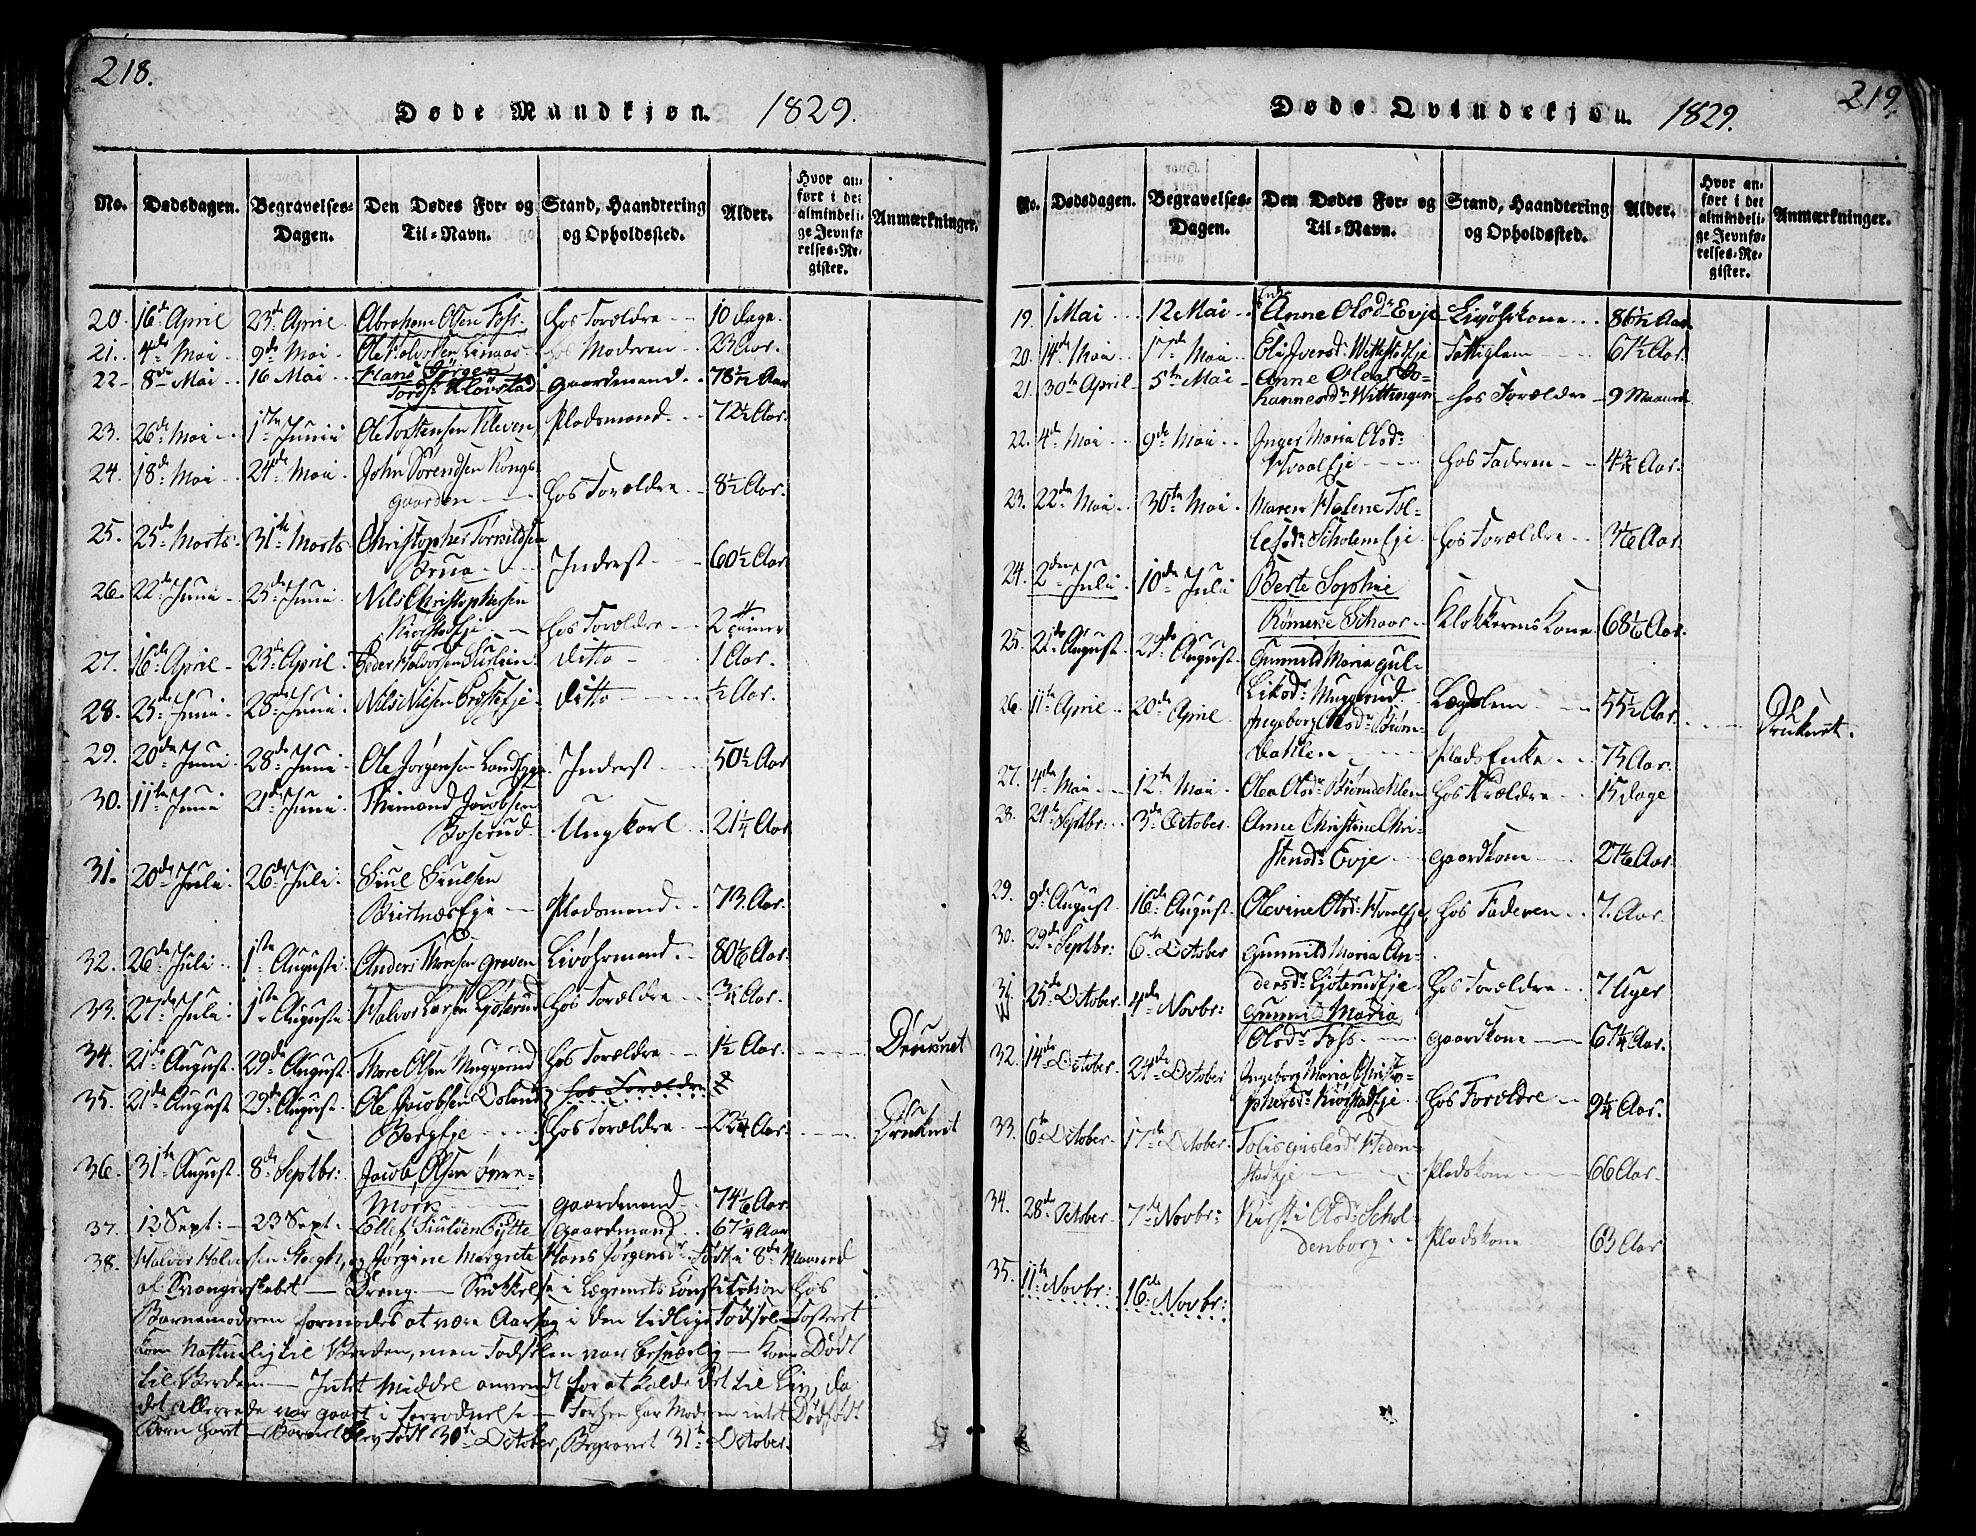 218.
Døde Mandkjøn. 1829.
No. Dødsdagen. Begravelses-Dagen. Den Dødes For- og Til-Navn. Stand, Haandtering og Opholdssted. Alder. Hvor anført i det almindelige Jevnførelses-Register. Anmærkninger.
20. 16de April 23de April. Abraham Olsen Foss. hos Forældre 10 Dage.
21. 4de Mai 9de Mai Ole Halvorsen hos Moderen 23 Aar.
22 8de Mai 16 Mai Hans Jørgen
Gaardmand 78 Aar
23. 26de Mai 1ste Junii Ole Torstensen Kleven Pladsmand 72½ Aar.
24. 18de Mai 24de Mai John Sørendsen Kongs-
gaarden hos Forældre 8½ Aar.
25. 25de Marts 31te Marts Christopher
Brua Inderst 60½ Aar
26. 22de Juni 25de Juni Nils Christophersen
Eje hos Forældre 2
27. 16de April 23de April. Peder Halvorsen ditto 1 Aar.
28. 25de Juni 28de Juni Nils Nilsen Eje ditto ½ Aar.
29. 20de Juni 28de Juni Ole Jørgensen Inderst 50½ Aar
30. 11te Junii 21de Junii Jacobsen
Ungkarl 21¼ Aar
31. 20de Juli 26de Juli Siul Siulsen
Eje Pladsmand 73 Aar.
32. 26de Juli 1ste Augusti Anders Thoresen Graven Livøhrmand 80 Aar.
33. 27de Juli 1ste Augusti Halvor Larsen hos Forældre 3 Aar.
34. 21de August 29de August Thore Olsen Muggerud hos Forældre 1½ Aar. Druknet
35. 21de August 29de August Ole Jacobsen hos Forældre
Berg Eje hos Forældre 23¼ Aar. Druknet
36. 31te August 8de Septbr: Jacob Olsen Øvre-
Mork Gaardmand 74 Aar.
37. 12 Sept: 23 Sept. Ellef Siulsen Gaardmand 67¼ Aar
38. Halvor Halvorsen og Jørgine Margrete Hans Jørgensdr. Født i 8de Maaned
af Svangerskabet — Dreng — Svækkelse i Legemets Constitution hos
Barnemoderen formodes at være Aarsag i den tidlige Fødsel — Fosteret
kom Naturlig til Verden, men Fødselen var besværlig — kom Dødt
til Verden — Intet Middel anvendt for at kalde det til Liv, da
det allerrede var gaaet i Forraadnelse — Forhen har Moderen intet Dødfødt
Barn havt — Barnet blev Født 30te October, Begravet 31te October.
219
Døde Qvindekjøn. 1829.
No. Dødsdagen. Begravelses-Dagen. Den Dødes For- og Til-Navn. Stand, Haandtering og Opholdssted. Alder. Hvor anført i det almindelige Jevnførelses-Register. Anmærkninger.
Enke
19. 1 Mai 12 Mai Anne Olsdr Evje Livøhrkone 86½ Aar
20. 14de Mai 17de Mai Eli Iversdr Eje Fattiglem 67½ Aar.
21. 30te April 5te Mai Anne Olea Jo-
hannesdr Wittingen hos Forældre 9 Maaned
22. 4de Mai 9de Mai Inger Maria Olsdr
Hvaal Eje hos Faderen 4¾ Aar.
23. 22de Mai 30te Mai Maren Helene Tol-
lefsdr Scholem Eje hos Forældre 3 Aar.
24. 2den Juli 10de Juli Berte Sophie
Schaar Klokkerens Kone 68 Aar.
25. 21de August 29de August Gunnild Maria Gul-
liksdr Muggerud Lægdslem 55½ Aar Druknet.
26. 11te April 20de April Ingeborg Olsdr Biørn-
dahlen Plads Enke 75 Aar.
27. 4de Mai 12te Mai Olea Olsdr Biørndahlen hos Forældre 15 Dage
28. 24de Septbr: 3de October Anne Christine Chri-
stensdr Evje Gaardkone 27 Aar.
29. 9de August 16de August Olevine Olsdr Hvaal Eje hos Faderen 7 Aar.
30. 29de Septbr: 6te October Gunnild Maria An-
dersdr Eje hos Forældre 7 Uger
31. 25de October. 4de Novbr: Gunnild Maria
Olsdr Foss Gaardkone 67¼ Aar.
32. 14de October 24de October Ingeborg Maria Christo-
phersdr Eje hos Forældre 9¼ Aar.
33. 6te October 17de October. Heden-
stad Eje Pladskone 66 Aar.
34. 28de October 7de Novbr: Kirsti Olsdr Schol-
denborg Pladskone 63 Aar
35. 11te Novbr: 16de Novbr: